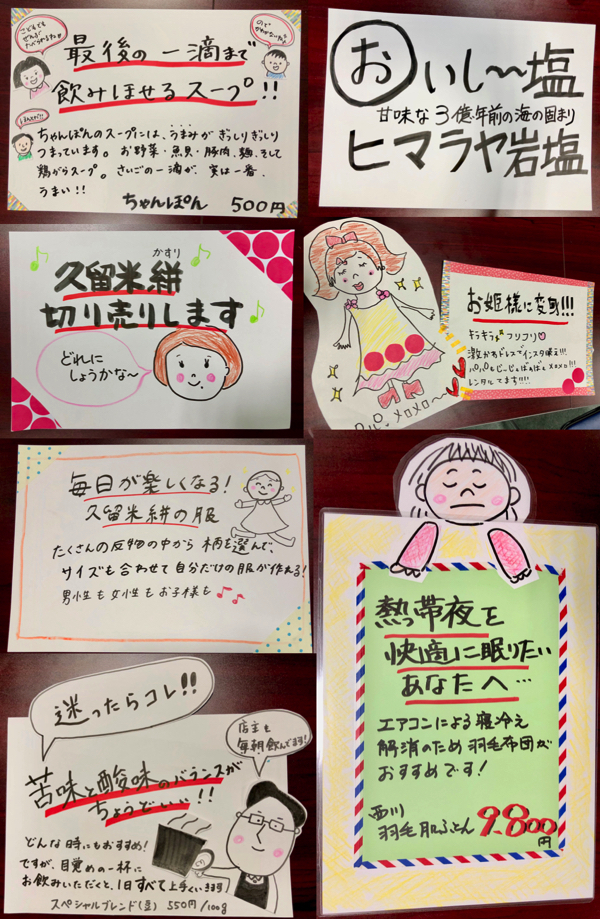 こどもでも
ぜんぶ
たべられるね♥
のどが
かわかないよ
最後の一滴まで
飲みほせるスープ!!
ほんまだ!!
ちゃんぽんのスープには、うまみがぎっしりぎしり
つまっています。お野菜・魚貝・豚肉、麺、そして
鶏がらスープ。さいごの一滴が、実は一番、
うまい!!
ちゃんぽん 500円
おいし〜〜塩
甘味な3億年前の海の固まり
ヒマラヤ岩塩
かすり
久留米絣
切り売りします
どれに
しょうかな〜
お姫様に変身!!!
キラキラ フリフリ♡
激かわドレスでインスタ映え!!!
パパもじーじもばぁばもメロメロ!!!
レンタルできます!!!!
メロメロ〜
毎日が楽しくなる!
久留米絣の服
たくさんの反物の中から柄を選んで、
サイズも合わせて自分だけの服が作れる!
男性も女性もお子様も♪♫
熱帯夜を
快適に眠りたい
あなたへ…
エアコンによる寝冷え
解消のため羽毛布団が
おすすめです!
西川
羽毛肌ふとん 9.800
円
迷ったらコレ!!
店主も
毎朝飲んでます!
苦味と酸味のバランスが
ちょうどいい!!
どんな時にもおすすめ!
ですが、目覚めの一杯に
お飲みいただくと、1日すべて上手くいきます!
スペシャルブレンド(豆) 550円/100g